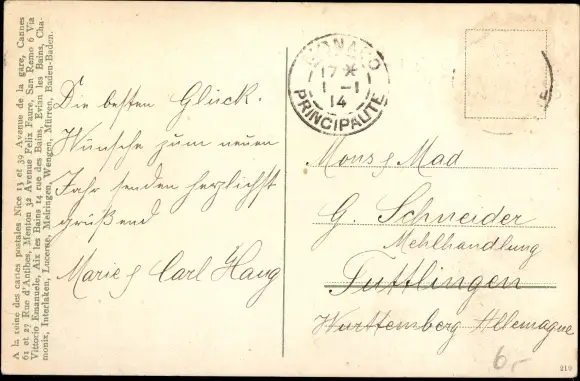 A la reine des cartes postales Nice 13 et 39 Avenue de la gare, Cannes
61 et 27 Rue d'Antibes, Menton 32 Avenue Felix Faure, San Remo 6 Via
Vittorio Emanuele, Aix les Bains 14 rue des Bains, Evian les Bains, Cha-
monix, Interlaken, Lucerne, Meiringen, Wengen, Mürren, Baden-Baden.
Die besten Glück-
Wünsche zum neuen
Jahr senden herzlichst
grüßend
Marie & Carl Haug
MONACO
17 *
1 - 1
14
PRINCIPAUTE
Mons & Mad
G. Schneider
Mehlhandlung
Tuttlingen
Württemberg Allemagne
6,-
219